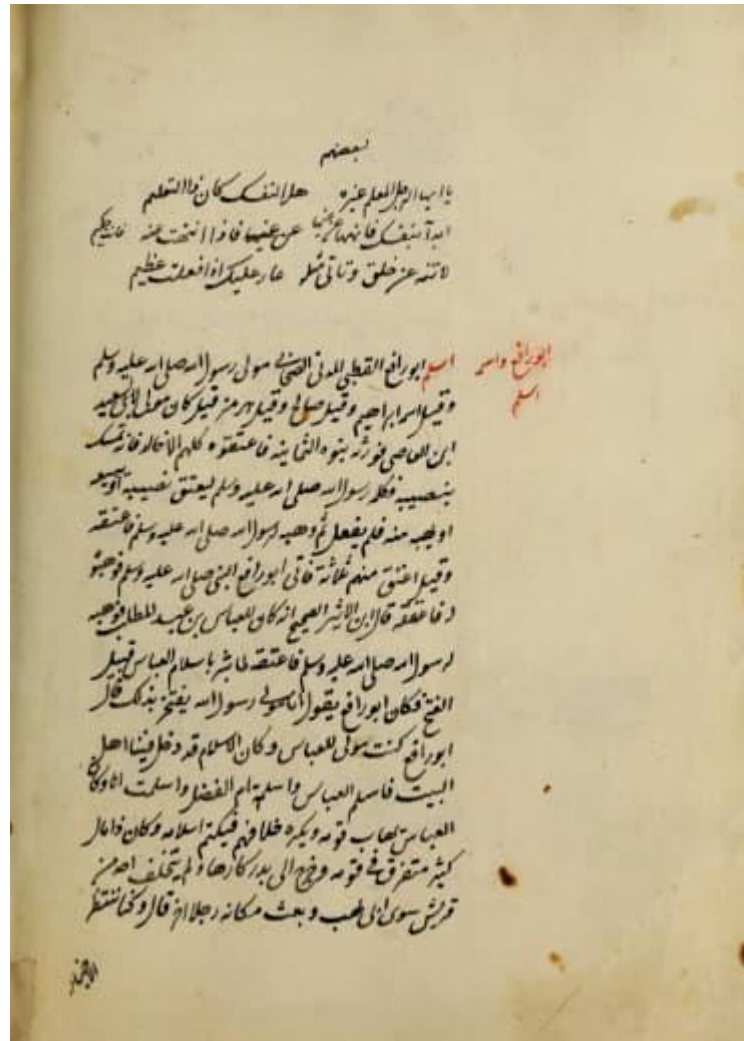 لبعضهم
يا ايها الرجل المعلم غيره هلا لنفسك كان ذا التعليم
ابدأ بنفسك فانهها عن غيها فاذا انتهت عنه فانت حكيم
لا تنه عن خلق وتأتي مثله عار عليك اذا فعلت عظيم
ابورافع واسمه اسلم
اسلم ابورافع القبطي المدني الصحابي مولى رسول الله صلى الله عليه وسلم
وقيل اسمه ابراهيم وقيل صالح وقيل هرمز قيل كان مولى لابي سعيد
ابن العاصي فورثه بنوه الثمانية فاعتقوه كلهم الا خالد فانه تمسك
بنصيبه فكلمه رسول الله صلى الله عليه وسلم ليعتق نصيبه او يبيعه
او يهبه منه فلم يفعل ثم وهبه لرسول الله صلى الله عليه وسلم فاعتقه
وقيل اعتق منهم ثلاثة فاتى ابورافع النبي صلى الله عليه وسلم
فاعتقه قال ابن الاثير الصحيح انه كان للعباس بن عبد المطلب فوهبه
لرسول الله صلى الله عليه وسلم فاعتقه لما بشره باسلام العباس قبيل
الفتح فكان ابورافع يقول انا مولى رسول الله يفتخر بذلك قال
ابورافع كنت مولى للعباس وكان الاسلام قد دخل فينا اهل
البيت فاسلم العباس واسلمت ام الفضل واسلمت انا وكان
العباس يهاب قومه ويكره خلافهم فيكتم اسلامه وكان ذا مال
كثير متفرق في قومه وخرج الى بدر كارها ولم يتخلف احد من
قريش سوى ابي لهب وبعث مكانه رجلا اخر قال وكنا ننتظر
الاخبار